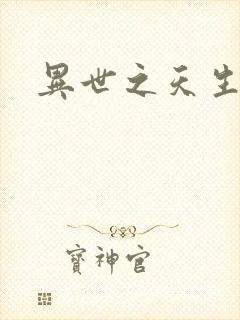 異世之天生
寶神官